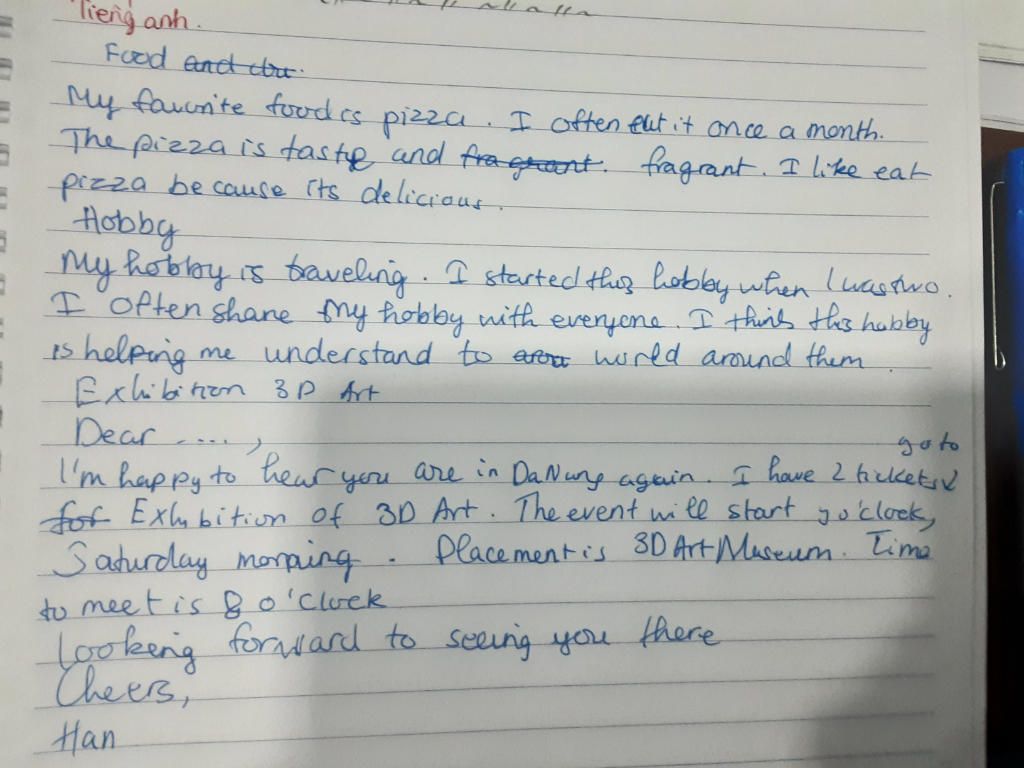 Tiếng anh.
Food and
My favorite food is pizza. I often eat it once a month.
The pizza is taste and fragrant. fragrant. I like eat
pizza because its delicious.
Hobby
My hobby is traveling. I started this hobby when I was two.
I often share my hobby with everyone. I think this hobby
is helping me understand to world around them.
Exhibition 3D Art
Dear ....,
go to
I'm happy to hear you are in Da Nang again. I have 2 tickets
for Exhibition of 3D Art. The event will start 9 o'clock,
Saturday morning. Placement is 3D Art Museum. Time
to meet is 8 o'clock
Looking forward to seeing you there
Cheers,
Han